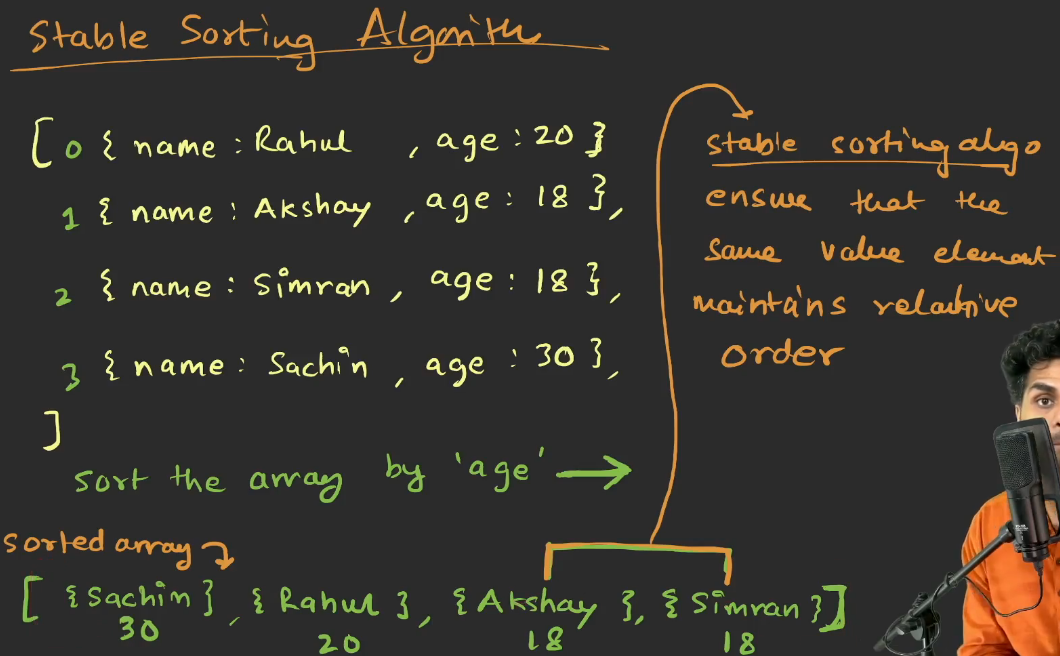 Stable Sorting Algorith
[ 0 { name : Rahul , age : 20 }
1 { name : Akshay , age : 18 },
2 { name : Simran , age : 18 },
3 { name : Sachin , age : 30 },
]
sort the array by 'age' →
stable sorting algo
ensure that the
same value element
maintains relative
order
sorted array
[ {Sachin} , { Rahul }, { Akshay }, { Simran } ]
30 20 18 18